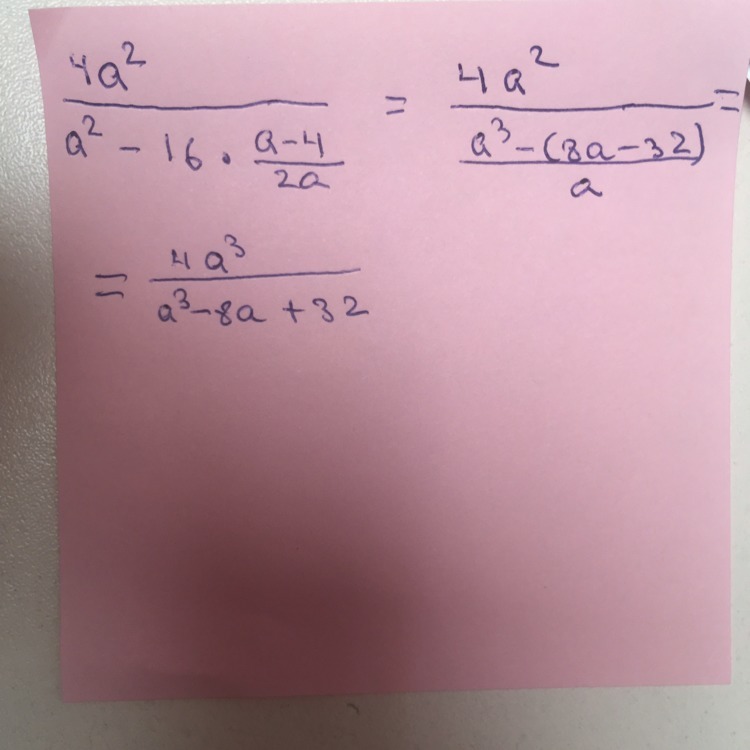 4a² / (a² - 16 · (a-4)/(2a)) = 4a² / ((a³-(8a-32))/a) =
= 4a³ / (a³-8a+32)